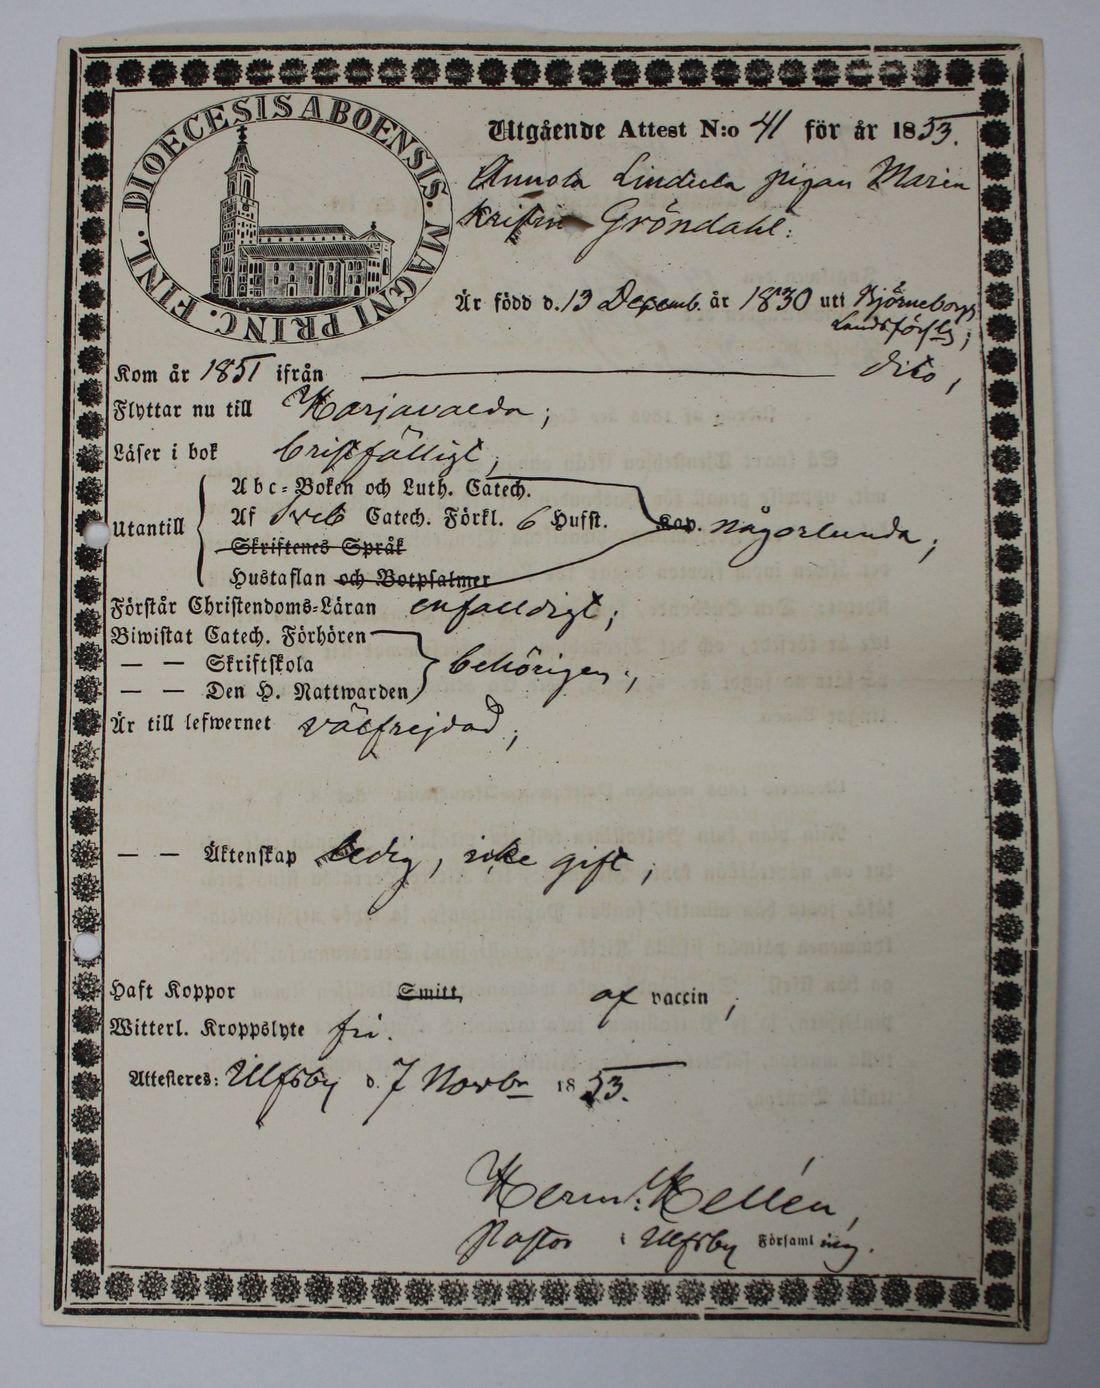 DIOECESIS ABOENSIS. MAGNI PRINC. FINL.
Utgående Attest N:o 41 för år 1853.
Annola Lindula pigan Maria
Kristin Gröndahl.
Är född d. 13 Decemb. år 1830 uti Björneborgs
Landsförsl;
Kom år 1851 ifrån dito,
Flyttar nu till Harjavalda;
Läser i bok bristfälligt,
Abc-Boken och Luth. Catech.
Utantill Af Sveb Catech. Förkl. 6 Hufst. Kap. någorlunda;
Skriftenes Språk
Hustaflan och Botpsalmer
Förstår Christendoms-Läran enfaldigt;
Biwistat Catech. Förhören
— — Skriftskola behörigen;
— — Den H. Nattwarden
Är till lefwernet välfrejdad;
— — Äktenskap ledig, icke gift;
Haft Koppor Smitt af vaccin;
Witterl. Kroppslyte fri.
Attesteres: Ulfsby d. 7 Novbr 1853.
Herm: Hellén,
Pastor i Ulfsby Församling.